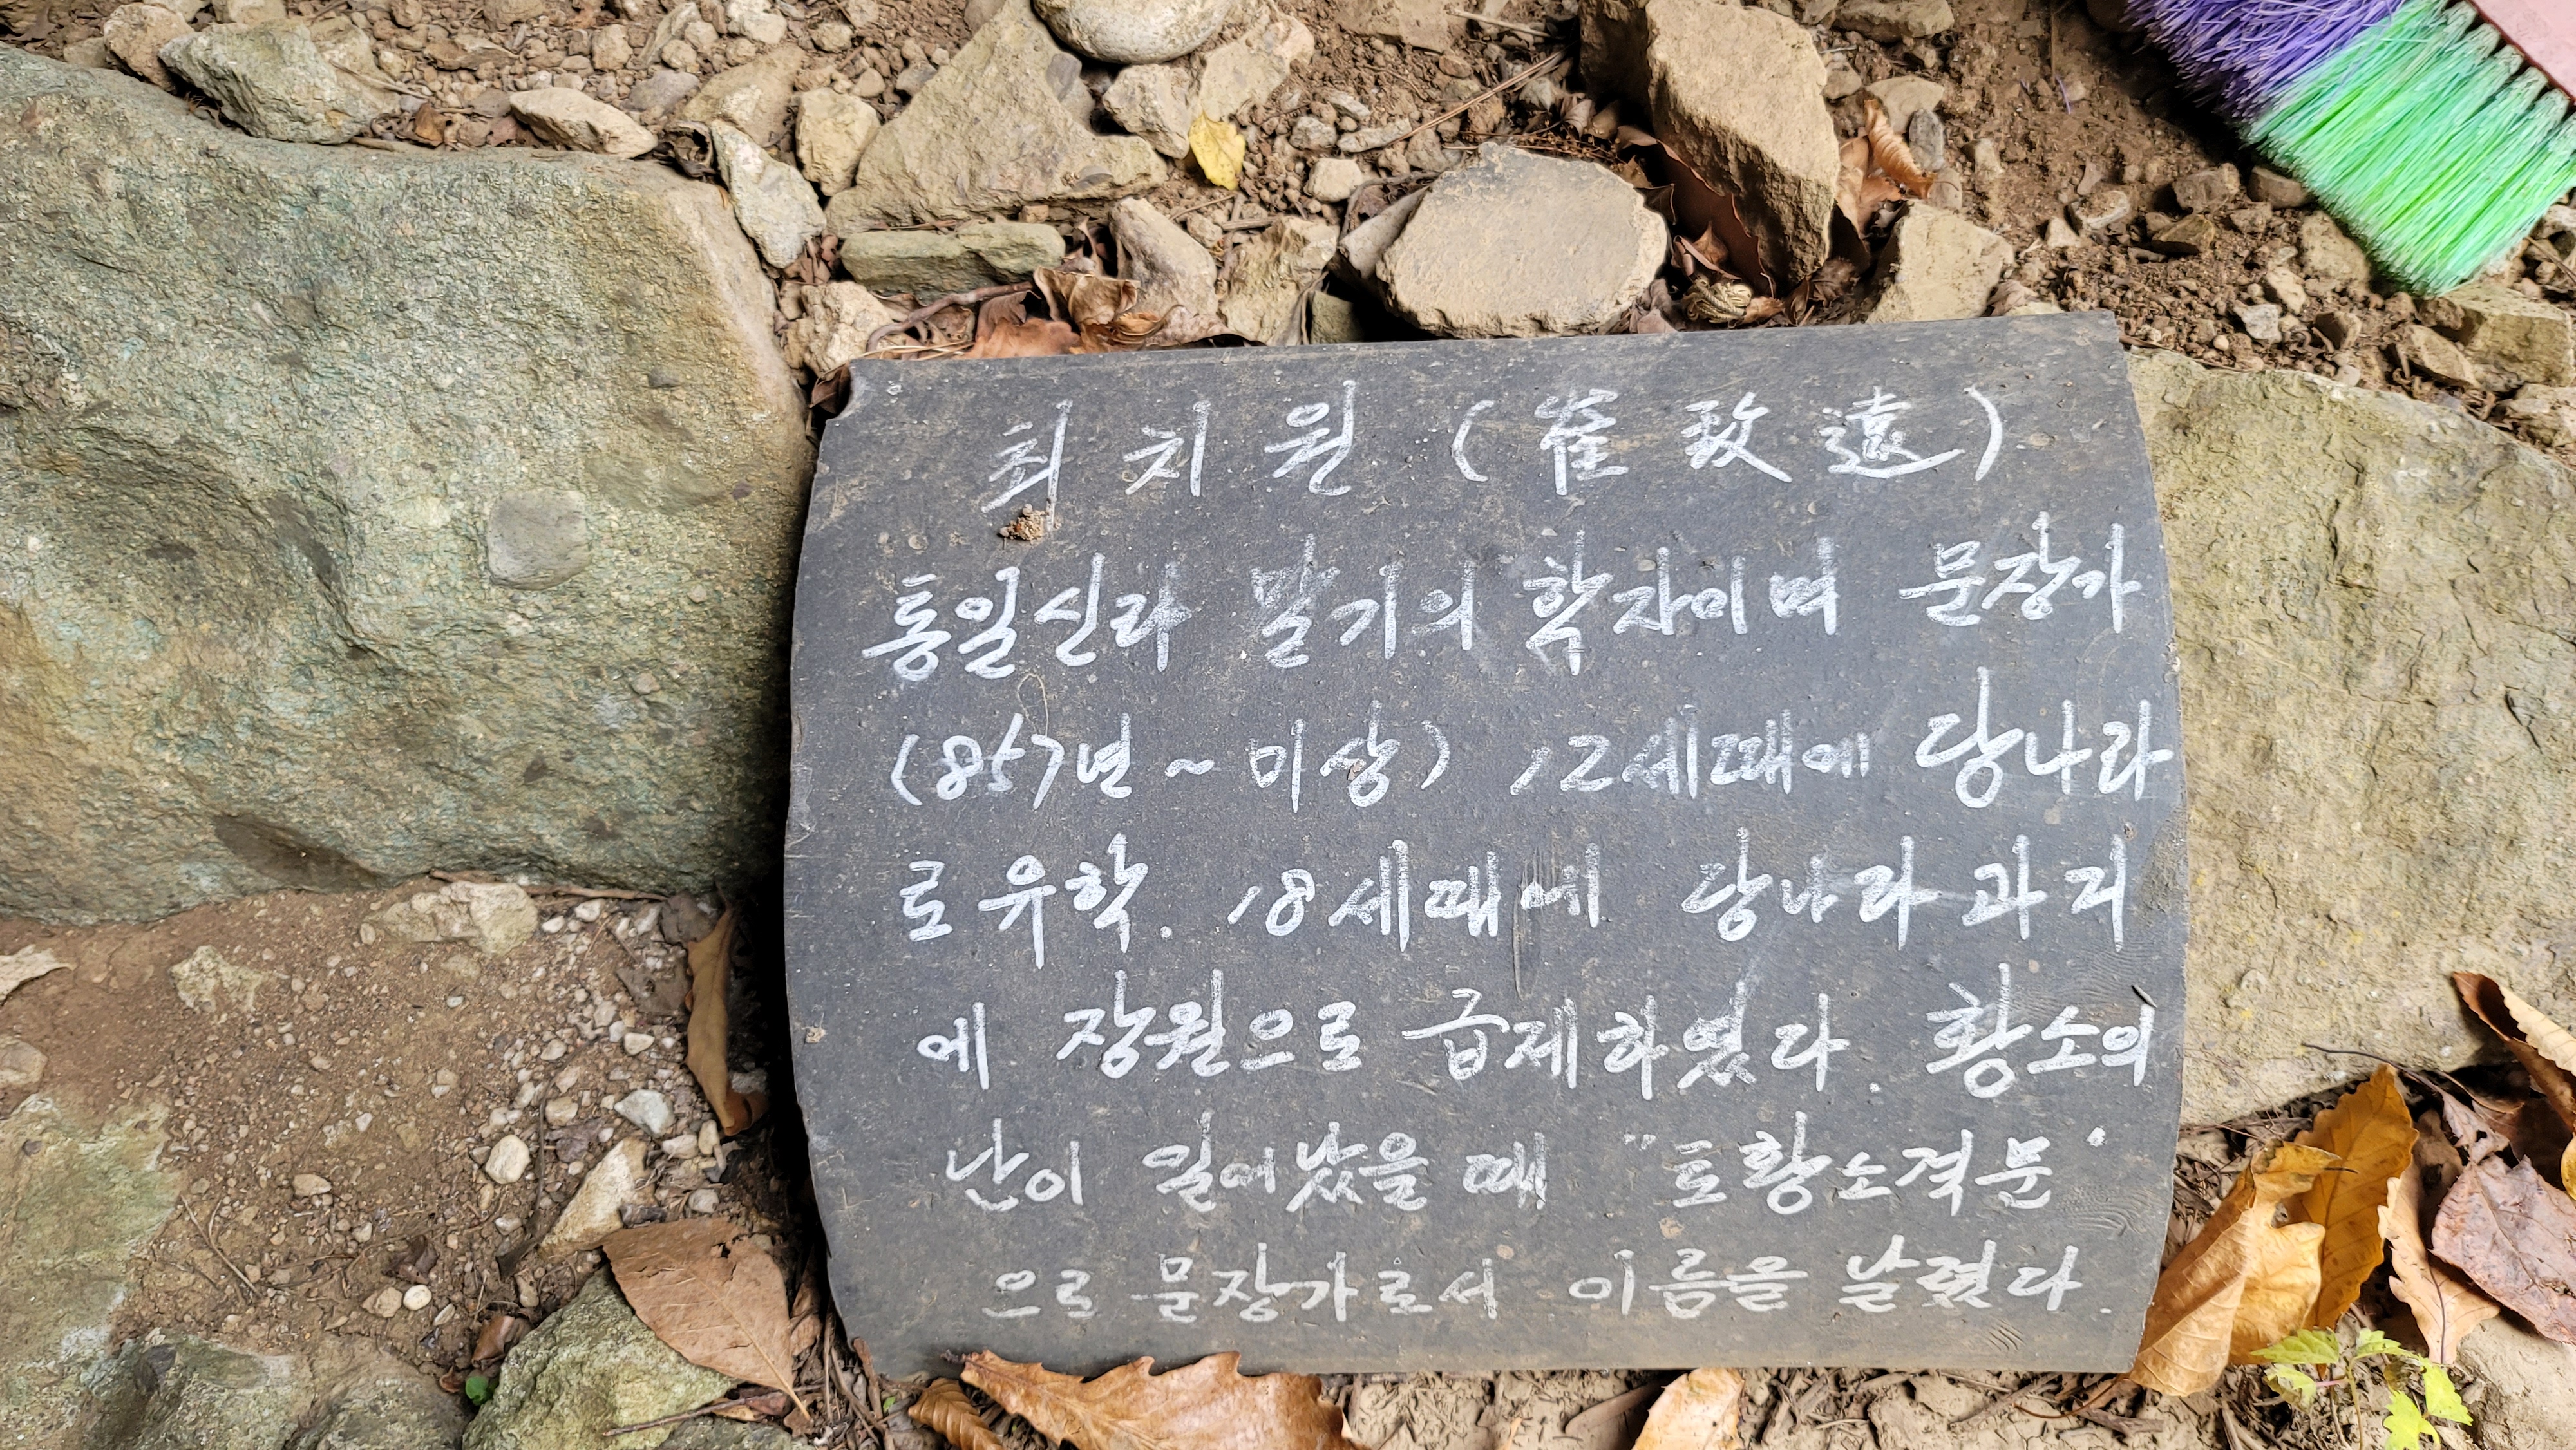 최치원 (崔致遠)
통일신라 말기의 학자이며 문장가
(857년 ~ 미상) 12세때에 당나라
로 유학. 18세때에 당나라 과거
에 장원으로 급제하였다. 황소의
난이 일어났을 때 "토황소격문"
으로 문장가로서 이름을 날렸다.